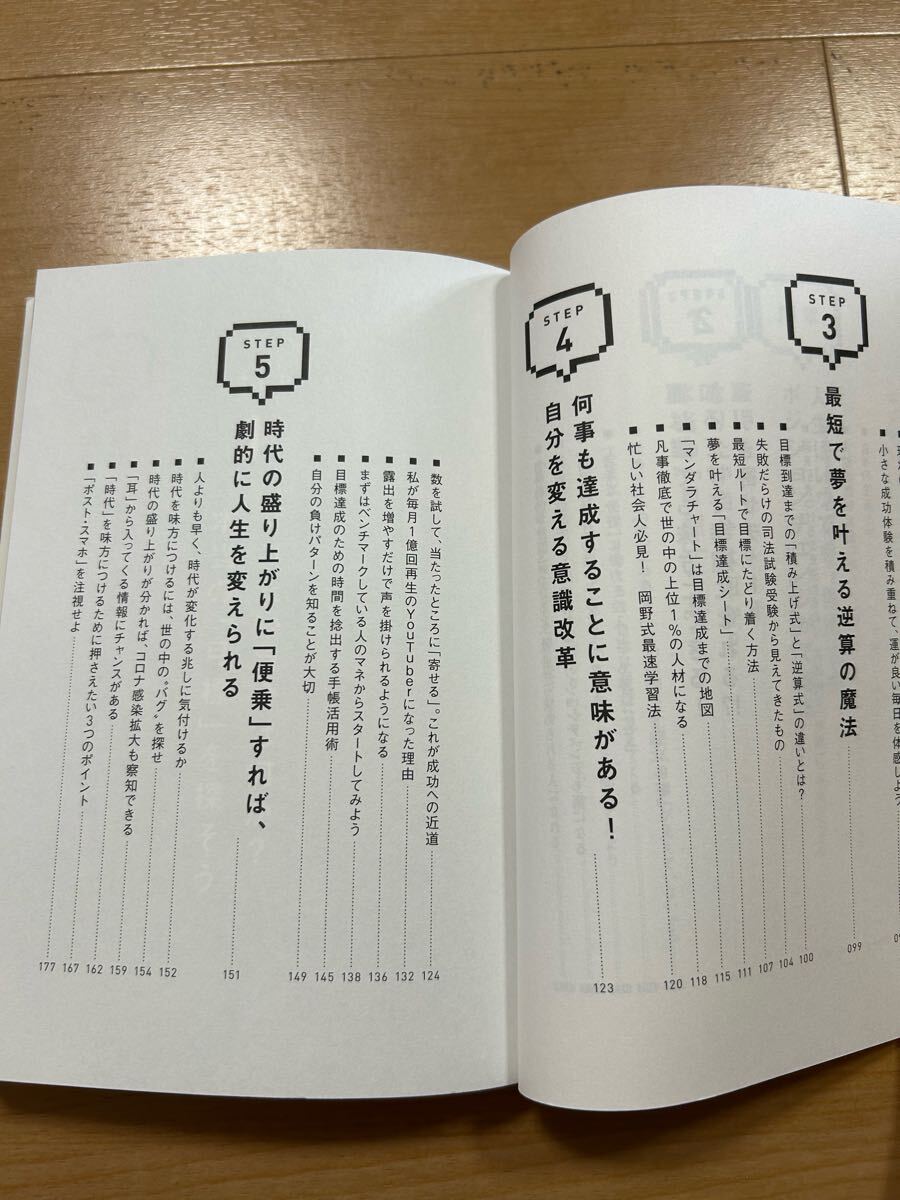 小さな成功体験を積み重ねて、運が良い毎日を体感しよう
STEP
3
最短で夢を叶える逆算の魔法 099
■目標到達までの「積み上げ式」と「逆算式」の違いとは? 100
■失敗だらけの司法試験受験から見えてきたもの 104
■最短ルートで目標にたどり着く方法 107
■夢を叶える「目標達成シート」 111
■「マンダラチャート」は目標達成までの地図 115
■凡事徹底で世の中の上位1%の人材になる 118
■忙しい社会人必見! 岡野式最速学習法 120
STEP
4
何事も達成することに意味がある!
自分を変える意識改革 123
■数を試して、当たったところに「寄せる」。これが成功への近道 124
■私が毎月1億回再生のYouTuberになった理由 132
■露出を増やすだけで声を掛けられるようになる 136
■まずはベンチマークしている人のマネからスタートしてみよう 138
■目標達成のための時間を捻出する手帳活用術 145
■自分の負けパターンを知ることが大切 149
STEP
5
時代の盛り上がりに「便乗」すれば、
劇的に人生を変えられる 151
■人よりも早く、時代が変化する兆しに気付けるか 152
■時代を味方につけるには、世の中の“バグ”を探せ 154
■時代の盛り上がりが分かれば、コロナ感染拡大も察知できる 159
■「耳」から入ってくる情報にチャンスがある 162
■「時代」を味方につけるために押さえたい3つのポイント 167
■「ポスト・スマホ」を注視せよ 177